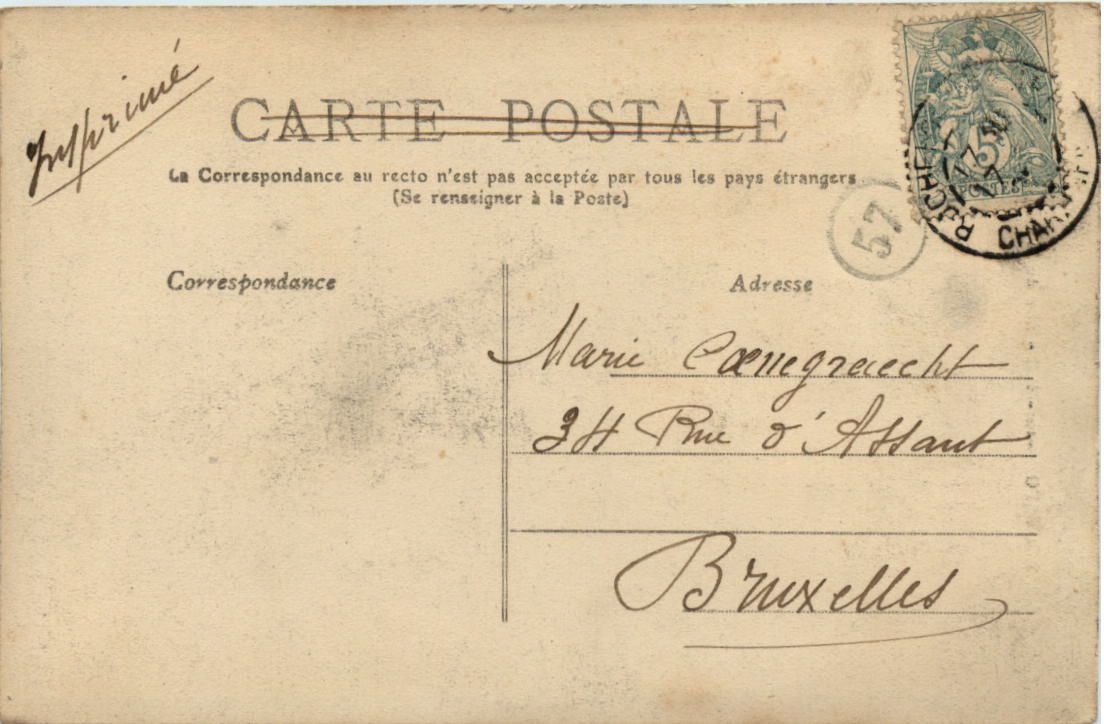 Imprimé
CARTE POSTALE
La Correspondance au recto n'est pas acceptée par tous les pays étrangers
(Se renseigner à la Poste)
57
5
POSTES
Correspondance
Adresse
Marie Coenegraecht
34 Rue d'Assaut
Bruxelles